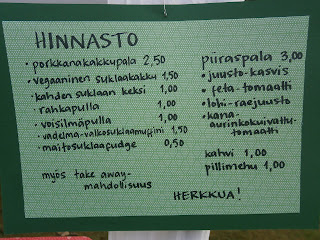 HINNASTO
• porkkanakakkupala 2,50
• vegaaninen suklaakakku 1,50
• kahden suklaan keksi 1,00
• rahkapulla 1,00
• voisilmäpulla 1,00
• vadelma-valkosuklaamuffini 1,50
• maitosuklaafudge 0,50
myös take away-
mahdollisuus
piiraspala 3,00
• juusto-kasvis
• feta-tomaatti
• lohi-raejuusto
• kana-
aurinkokuivattu-
tomaatti
kahvi 1,00
pillimehu 1,00
HERKKUA!